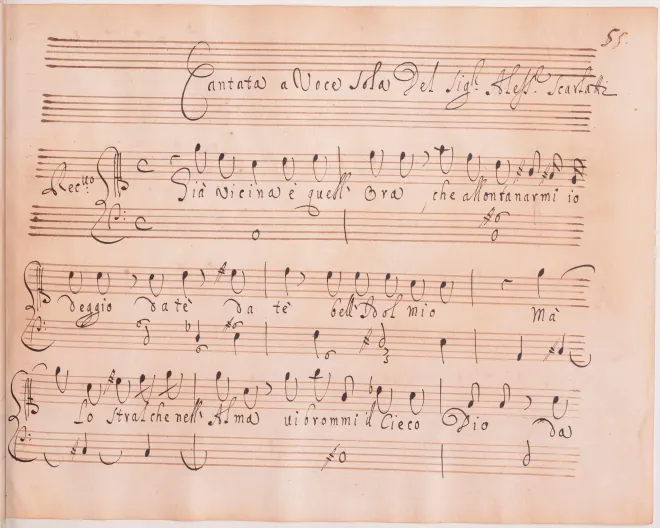 55.
Cantata a Voce Sola Del Sig.r Aless.o Scarlatti
Rec.vo
Già vicina è quell' Ora che allontanarmi io
deggio da tè da tè bell'Idol mio Mà
Lo stral che nell' Alma vi brommi il Cieco Dio da